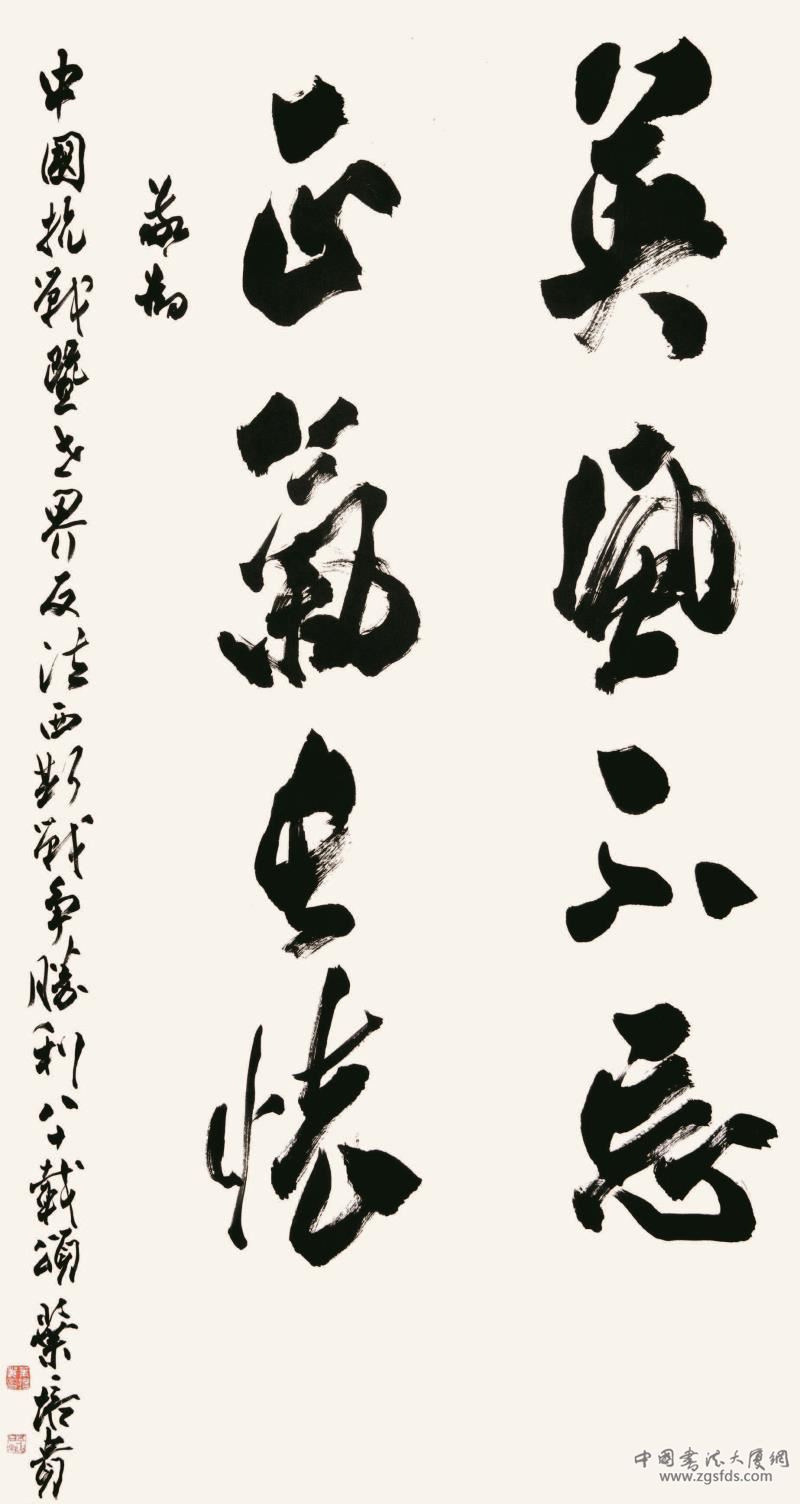 英風不忘
正氣長懷
敬
中國抗戰暨世界反法西斯戰爭勝利八十載頌 葉培貴
中國書法大廈網
www.zgsfds.com